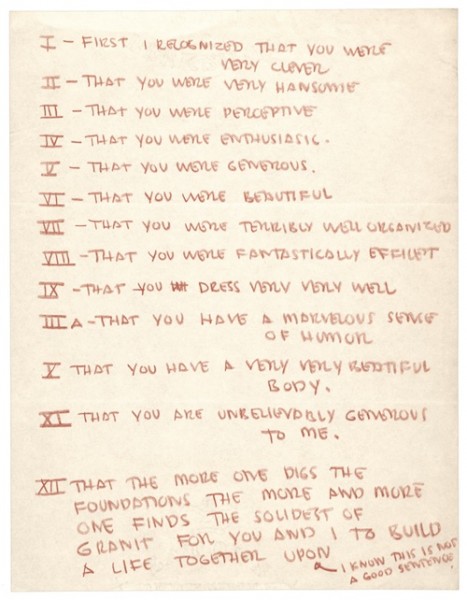 I - FIRST I RECOGNIZED THAT YOU WERE
VERY CLEVER
II - THAT YOU WERE VERY HANSOME
III - THAT YOU WERE PERCEPTIVE
IV - THAT YOU WERE ENTHUSIASIC.
V - THAT YOU WERE GENEROUS.
VI - THAT YOU WERE BEAUTIFUL
VII - THAT YOU WERE TERRIBLY WELL ORGANIZED
VIII - THAT YOU WERE FANTASTICALLY EFFILET
IX - THAT YOU DRESS VERY VERY WELL
IIIA - THAT YOU HAVE A MARVELOUS SENSE
OF HUMOR
X THAT YOU HAVE A VERY VERY BEATIFUL
BODY.
XI THAT YOU ARE UNBELIEVABLY GENEROUS
TO ME.
XII THAT THE MORE ONE DIGS THE
FOUNDATIONS THE MORE AND MORE
ONE FINDS THE SOLIDEST OF
GRANIT FOR YOU AND I TO BUILD
A LIFE TOGETHER UPON
I KNOW THIS IS NOT
A GOOD SENTENCE